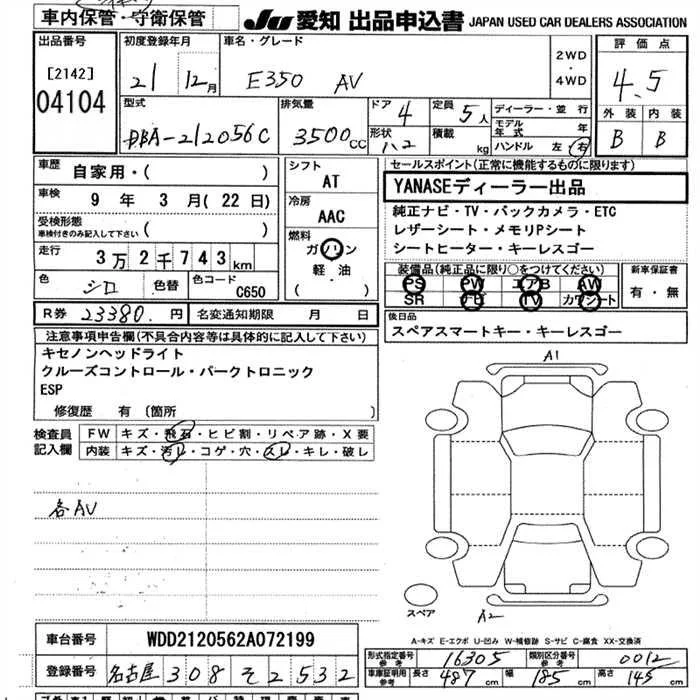 車内保管・守衛保管
JU 愛知 出品申込書 JAPAN USED CAR DEALERS ASSOCIATION
出品番号 初度登録年月 車名・グレード 2WD・4WD 評価点
[2142] 21 12月 E350 AV 4.5
04104
型式 排気量 ドア 4 定員 5人 ディーラー・並行 外装 内装
DBA-212056C 3500CC 形状 ハコ 積載 kg モデル年式 年 B B
ハンドル 左 右
車歴 自家用・( ) シフト AT セールスポイント(正常に機能するものに限ります)
YANASEディーラー出品
車検 9年 3月(22日) 冷房 AAC
純正ナビ・TV・バックカメラ・ETC
受検形態 車検付きのみ記入して下さい ( )
レザーシート・メモリPシート
走行 3万2千743km 燃料 ガソリン 軽・油 ( )
シートヒーター・キーレスゴー
色 シロ 色替 色コード C650
装備品(純正品に限り○をつけてください) 新車保証書
PS PW エアB AW 有・無
SR ナビ TV カワシート
R券 23380.円 名変通知期限 月 日
後日品
スペアスマートキー・キーレスゴー
注意事項申告欄(不具合内容等は具体的に記入して下さい)
キセノンヘッドライト
クルーズコントロール・パークトロニック
ESP
修復歴 有〔箇所 〕
検査員記入欄 FW キズ・飛石・ヒビ割・リペア跡・X要
内装 キズ・汚レ・コゲ・穴・スレ・キレ・破レ
A1
各AV
スペア
A2
A-キズ E-エクボ U-凹み W-補修跡 S-サビ C-腐食 XX-交換済
車台番号 WDD2120562A072199
形式指定番号 参考 16305 類別区分番号 参考 0012
登録番号 名古屋 308 そ 2532
車庫証明用 参考 長さ 487cm 幅 185cm 高さ 145cm